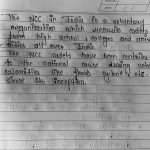 The NCC in India is a voluntary
organisation which recruits cadets
from high school, colleges and univer
sities all over India.
The NCC cadets have been contributing
to the national cause during natural
calamities like floods, cyclone etc
since its inception.